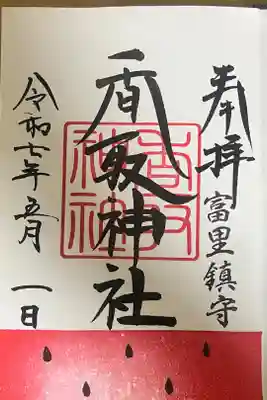 奉拝
富里鎮守
香取神社
香取神社
令和七年五月一日